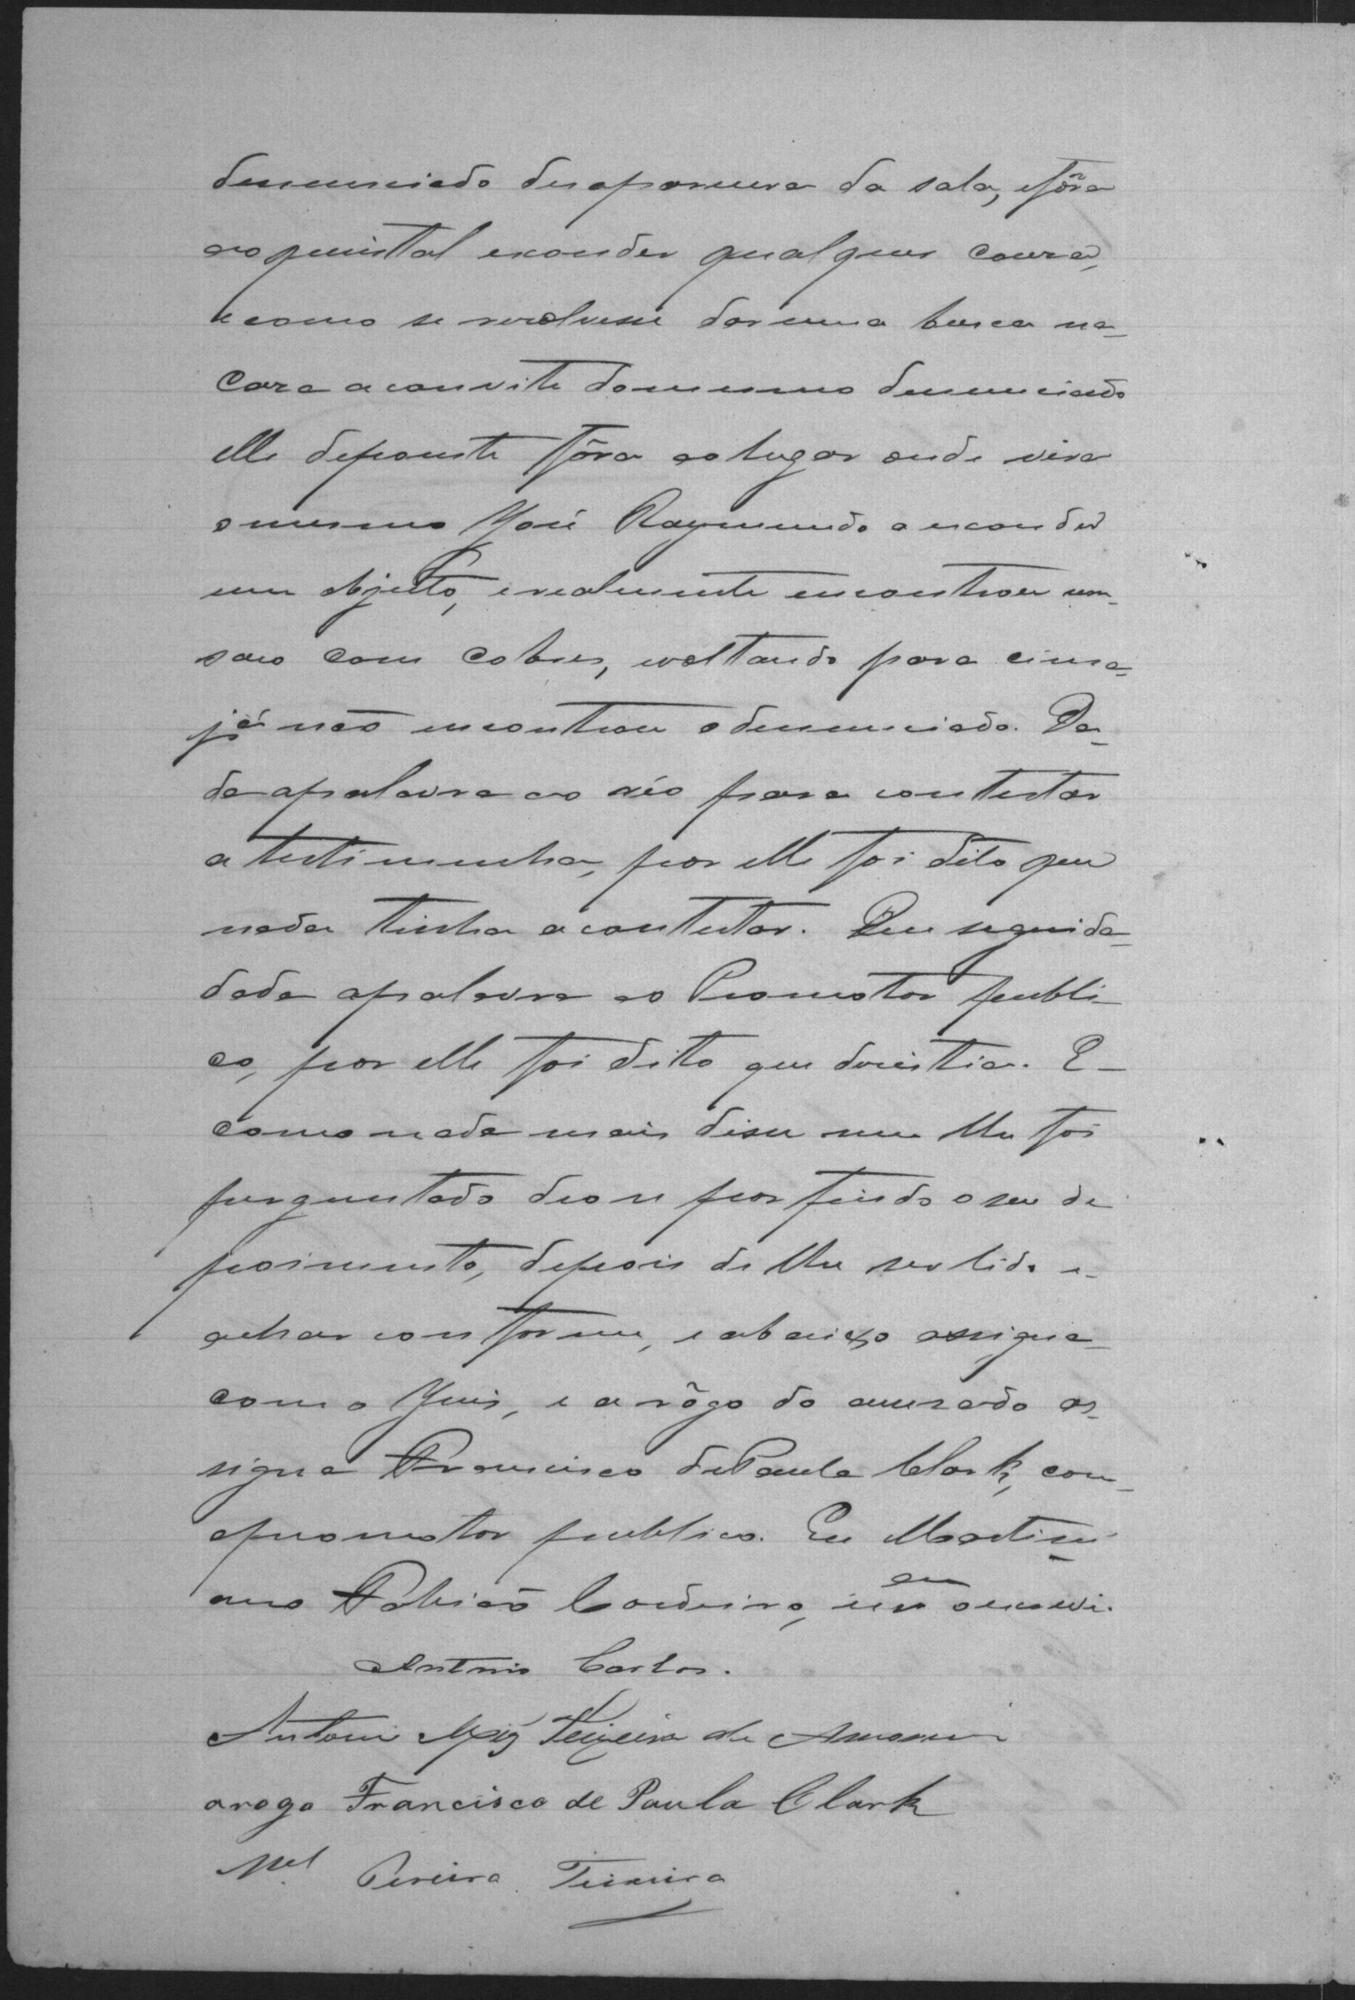 denunciado desaparecera da sala, e fôra
ao quintal esconder qualquer cousa,
e como se resolvesse dar uma busca na
casa a convite do mesmo denunciado
elle depoente fôra ao lugar onde vira
o mesmo José Raymundo a esconder
um objecto, e realmente encontrou um
saco com cobres, e voltando para cima
já não encontrou o denunciado. Da-
da a palavra ao réo para contestar
a testimunha, por elle foi dito que
nada tinha a contestar. Em seguida
dada a palavra ao Promotor publi-
co, por elle foi dito que desistia. E
como nada mais disse nem lhe foi
perguntado deo se por findo o seu de
poimento, depois de lhe ser lido e
achar conforme, e abaixo assigna
com o Juis, e a rôgo do accusado as-
signa Francisco de Paula Clark, com
o promotor publico. Eu Martini
ano Fabião Cordeiro, eu escrivi.
Antonio Carlos.
Antonio Teixeira de Amorim
arogo Francisco de Paula Clark
Mel Pereira Teixeira